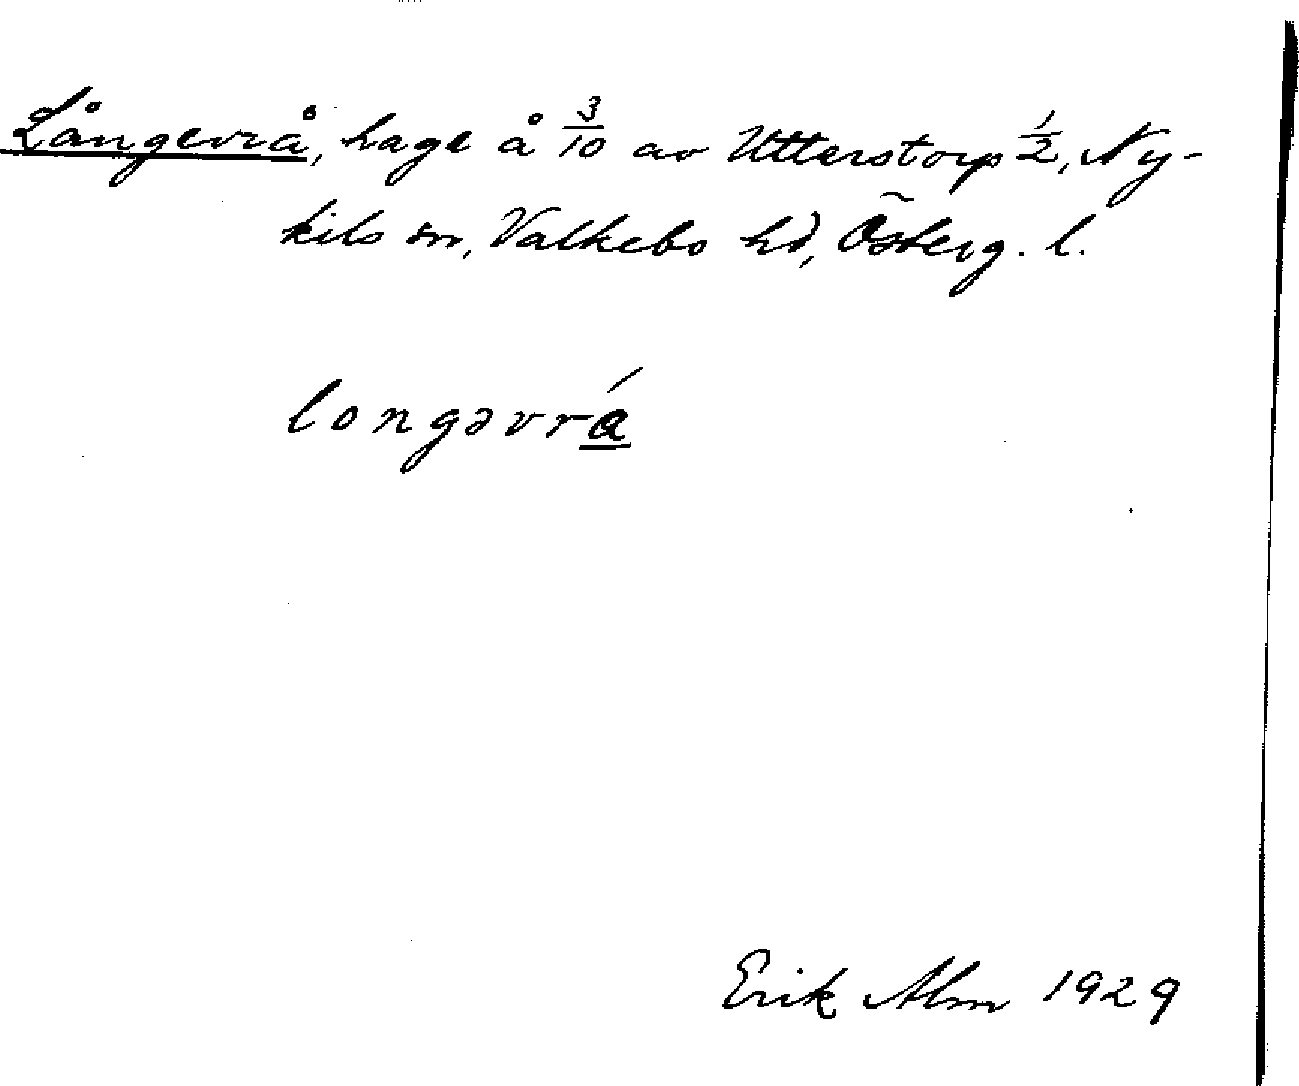 Långevrå, hage å 3/10 av Utterstorp 1/2, Ny-
kils sn, Valkebo hd, Österg. l.
longəvrá
Erik Alm 1929